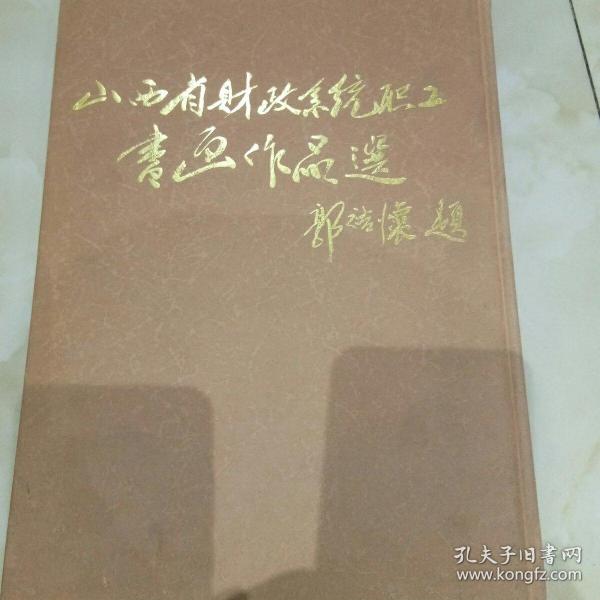 山西省财政系统职工
书画作品選
郭裕懷 題
孔夫子旧書网
www.kongfz.com